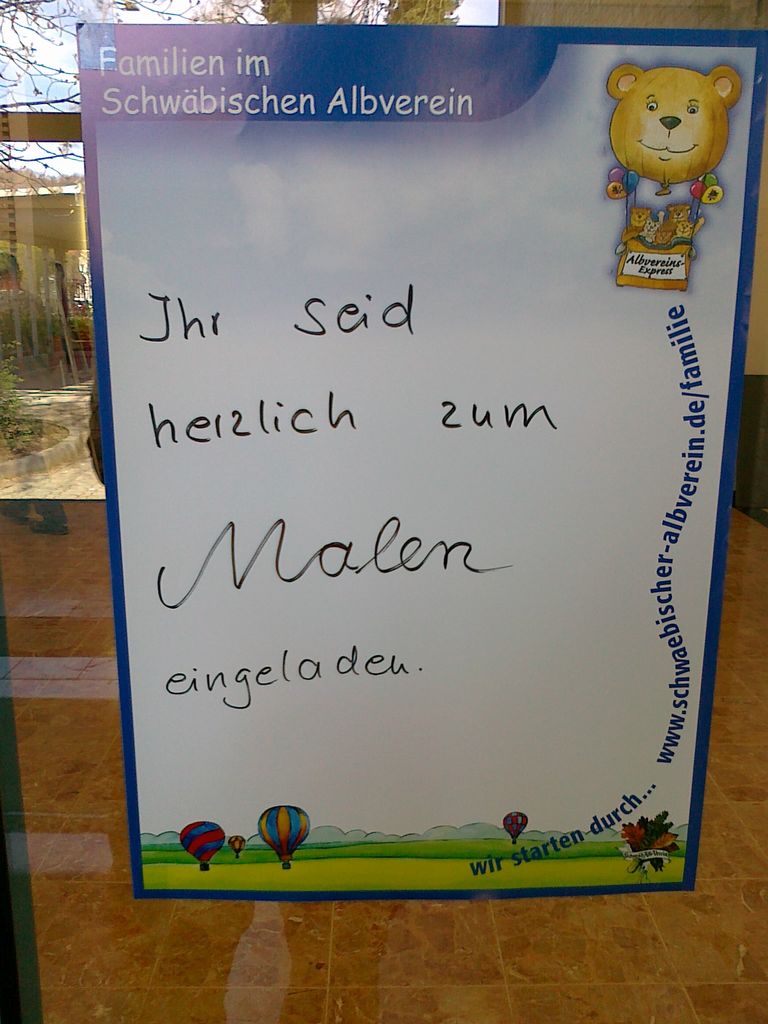 Familien im
Schwäbischen Albverein
Albvereins-
Express
Ihr seid
herzlich zum
Malen
eingeladen.
www.schwaebischer-albverein.de/familie
wir starten durch...